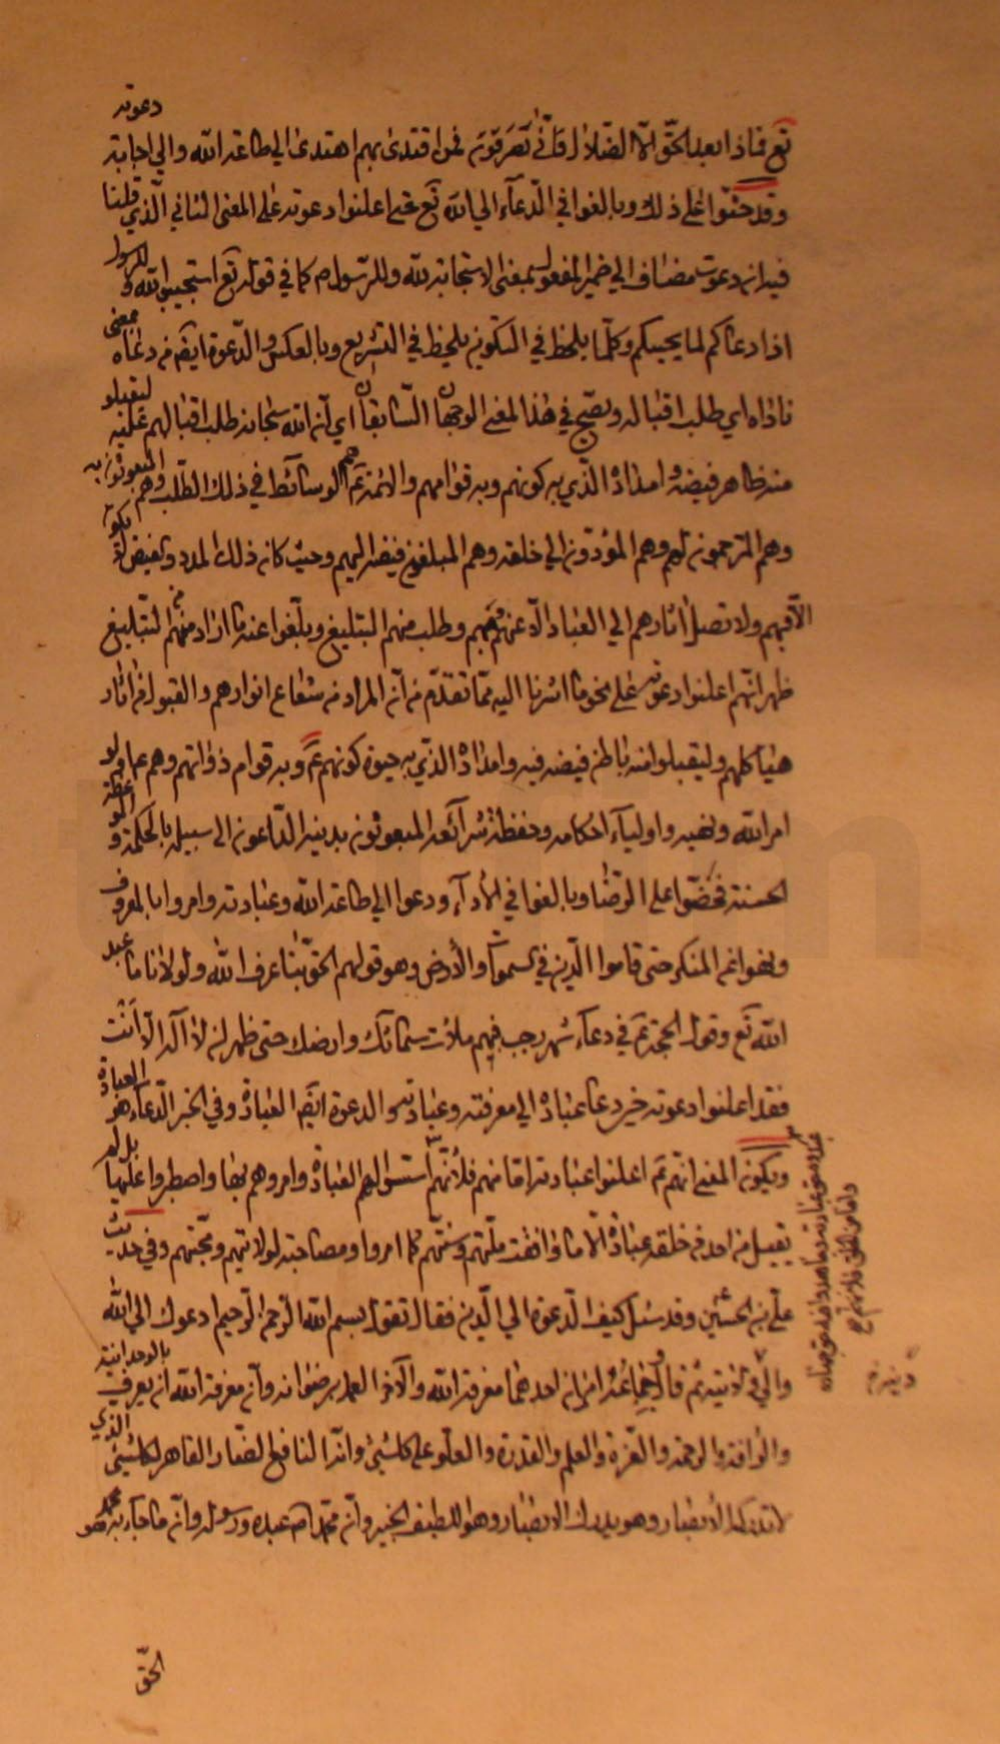 تع فماذا بعد الحق الا الضلال فانى تصرفون فمن اقتدى بهم اهتدى الى طاعة الله والى اجابة دعوته
وقد حثوا على ذلك وبالغوا في الدعآء الى الله تع حتى اعلنوا دعوته على المعنى الثاني الذي قلنا
فيه ان دعوت مضاف الى ضمير المفعول بمعنى الاستجابة لله وللرسول ص كما في قوله تع استجيبوا لله وللرسول
اذا دعاكم لما يحييكم وكلما يلحظ في التكوين يلحظ في التشريع وبالعكس والدعوة ايضا من دعاه بمعنى
ناداه اي طلب اقباله ويصح في هذا المعنى الوجهان السابقان اي ان الله سبحانه طلب اقبالهم عليه ليقبلوا
منه ظاهر فيضه وامداده الذي به كونهم وبه قوامهم والائمة ع هم الوسائط في ذلك الطلب وهم المبعوثون به
وهم المترجمون لهم وهم المؤدون الى خلقه وهم المبلغون فيضه اليهم وحيث كان ذلك المدد والفيض لا يكون
الا بهم ولا تصل اثارهم الى العباد الا عنهم وبهم وطلب منهم التبليغ وبلغوا عنه ما اراد منهم من التبليغ
ظهر انهم اعلنوا دعوته على نحو ما اشرنا اليه مما تقدم من ان المراد من شعاع انوارهم والقبول من اثار
هياكلهم وليقبلوا منه باطن فيضه فيه وامداده الذي به حيوة كونهم ع وبه قوام ذواتهم وهم ع اولو
امر الله ونهيه واوليآء احكامه وحفظة شرآئعه المبعوثون بدينه الداعون الى سبيله بالحكمة والموعظة
الحسنة فحضوا على الرضا وبالغوا في الأدآء ودعوا الى طاعة الله وعبادته وامروا بالمعروف
ونهوا عن المنكر حتى قاموا الدين في السموات والأرض وهو قولهم الحق بنا عرف الله ولولانا ما عبد
الله تع وقول الحجة ع في دعآء شهر رجب فبهم ملأت سمائك وارضك حتى ظهر ان لا اله الا انت
فقد اعلنوا دعوته خير دعا عباده الى معرفته وعبادته والدعوة ايضا العبادة وفي الخبر الدعآء هو العبادة
ويكون المعنى انهم ع اعلنوا عبادته اما منهم فلأنهم اسسوا لهم العبادة وامروهم بها واصطبروا عليها بل لم
يقبل من احد من خلقه عبادة الا ما وافقت ملتهم وسنتهم كما امروا ومصاحبة لولايتهم ومحبتهم وفي حديث
علي بن الحسين ع وقد سئل كيف الدعوة الى الدين فقال تقول بسم الله الرحمن الرحيم ادعوك الى الله
والى دينه ثم قال وجماعه امران احدهما معرفة الله والآخر العمل برضوانه وان معرفة الله ان يعرف بالوحدانية
والرافة والرحمة والعزة والعلم والقدرة والعلو على كل شيئ وانه النافع الضار القاهر لكل شيئ الذي
لا تدركه الأبصار وهو يدرك الابصار وهو اللطيف الخبير وان محمدا ص عبده ورسوله وان ما جآء به محمد هو
الحق